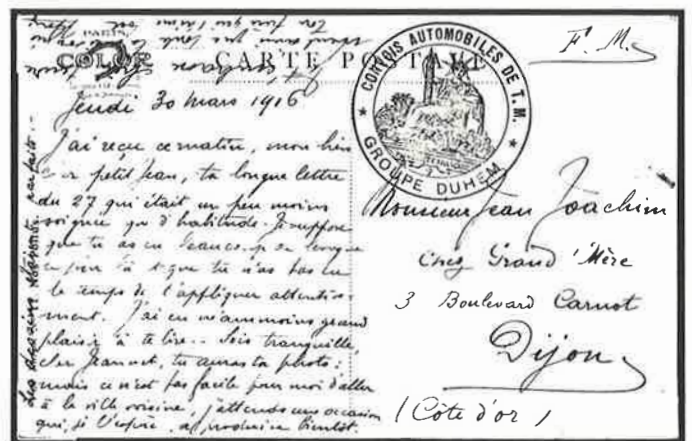 PARIS
COLOR
CARTE POSTALE
F. M.
CONVOIS AUTOMOBILES DE T. M.
★ GROUPE DUHEM ★
Jeudi 30 mars 1916
J'ai reçu ce matin, mon bien
petit Jean, ta longue lettre
du 27 qui était un peu moins
soignée que d'habitude. Je suppose
que tu as eu beaucoup
que tu n'as pas eu
le temps de t'appliquer attentive-
ment. J'ai eu néanmoins grand
plaisir à te lire.. Sois tranquille,
cher Jeannot, tu auras ta photo ;
mais ce n'est pas facile pour moi d'aller
à la ville voisine, j'attends une occasion
qui, je l'espère, se produira bientôt.
Les dessins étaient parfaits.
Monsieur Jean Joachim
Chez Grand'Mère
3 Boulevard Carnot
Dijon
(Côte d'or)